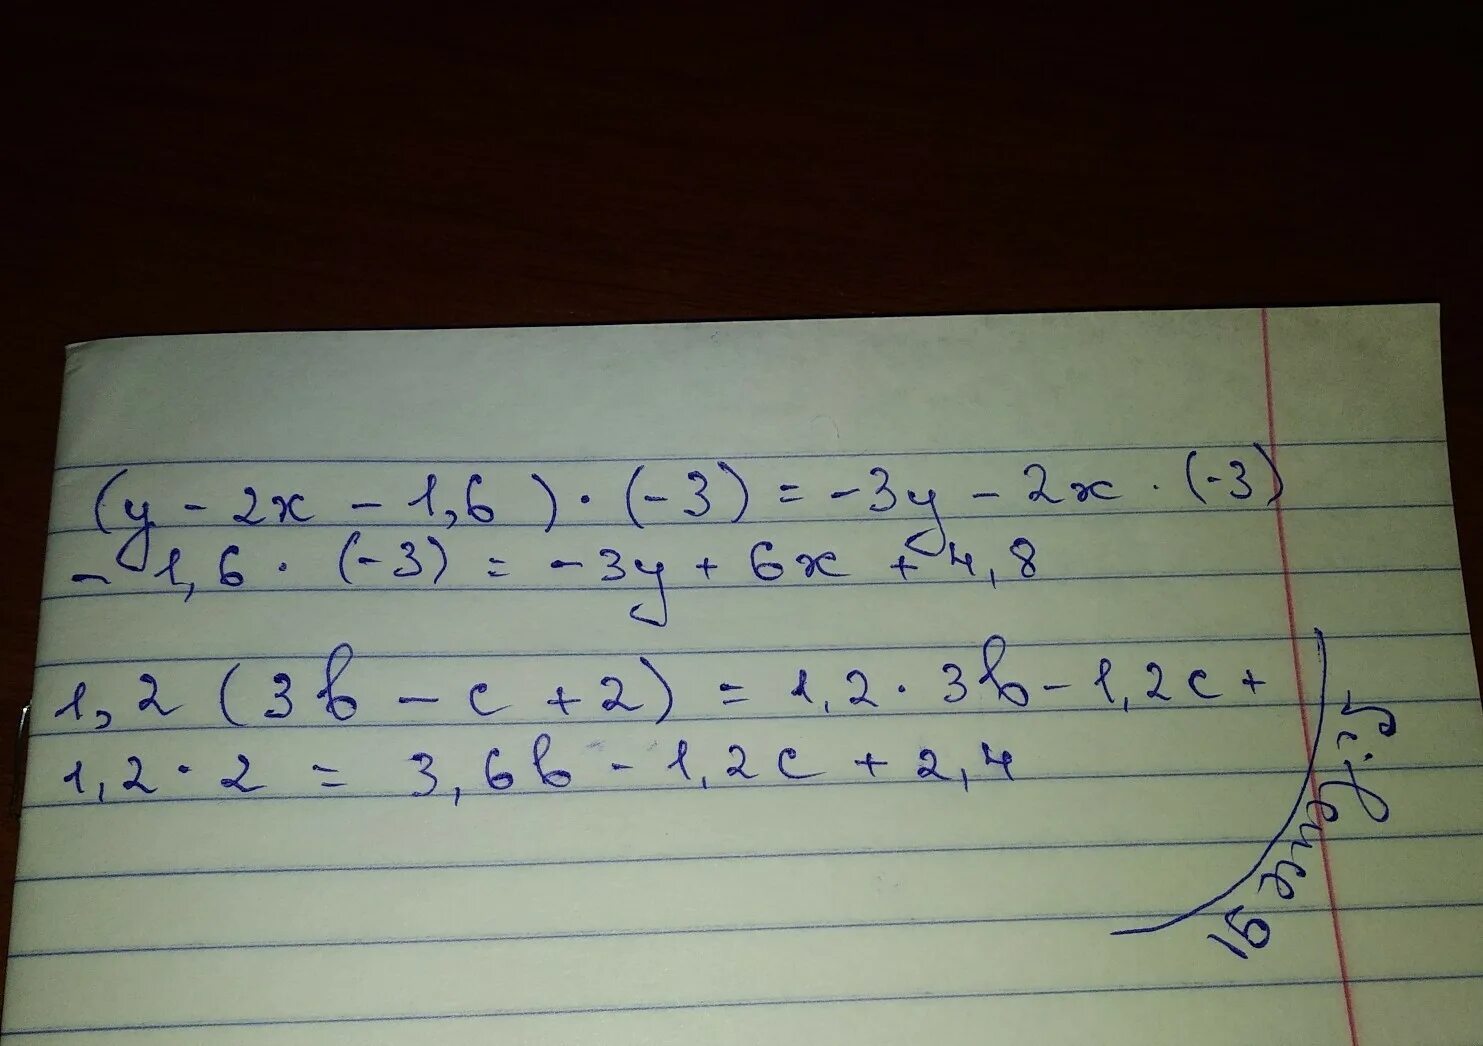 (y - 2x - 1,6) · (-3) = -3y - 2x · (-3)
- 1,6 · (-3) = -3y + 6x + 4,8
1,2 (3b - c + 2) = 1,2 · 3b - 1,2c +
1,2 · 2 = 3,6b - 1,2c + 2,4